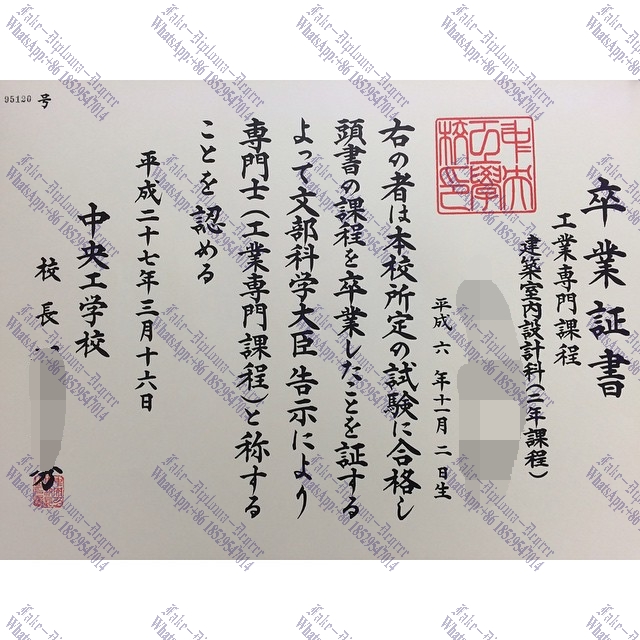 卒業証書
工業専門課程
建築室内設計科(二年課程)
平成六年十一月二日生
中央
工學
校印
右の者は本校所定の試験に合格し
頭書の課程を卒業したことを証する
よって文部科学大臣告示により
専門士(工業専門課程)と称する
ことを認める
平成二十七年三月十六日
中央工学校
校長
95120 号
Fake-Diploma-Degree
WhatsApp:+86 18529547014